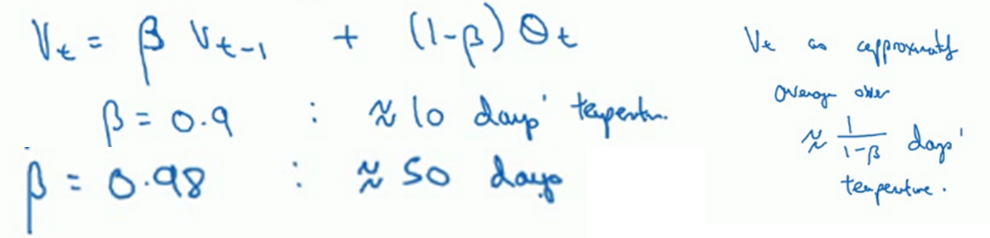 V_t = β V_{t-1} + (1-β) θ_t
β = 0.9 : ≈ 10 days' temperature.
β = 0.98 : ≈ 50 days
V_t as approximately
average over
≈ 1/(1-β) days'
temperature.